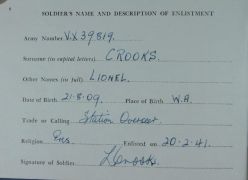 SOLDIER'S NAME AND DESCRIPTION OF ENLISTMENT
Army Number VX39819.
Surname (in capital letters) CROOKS.
Other Names (in full) LIONEL.
Date of Birth 21-8-09. Place of Birth W.A.
Trade or Calling Station Overseer
Religion Pres Enlisted on 20-2-41.
Signature of Soldier LCrooks